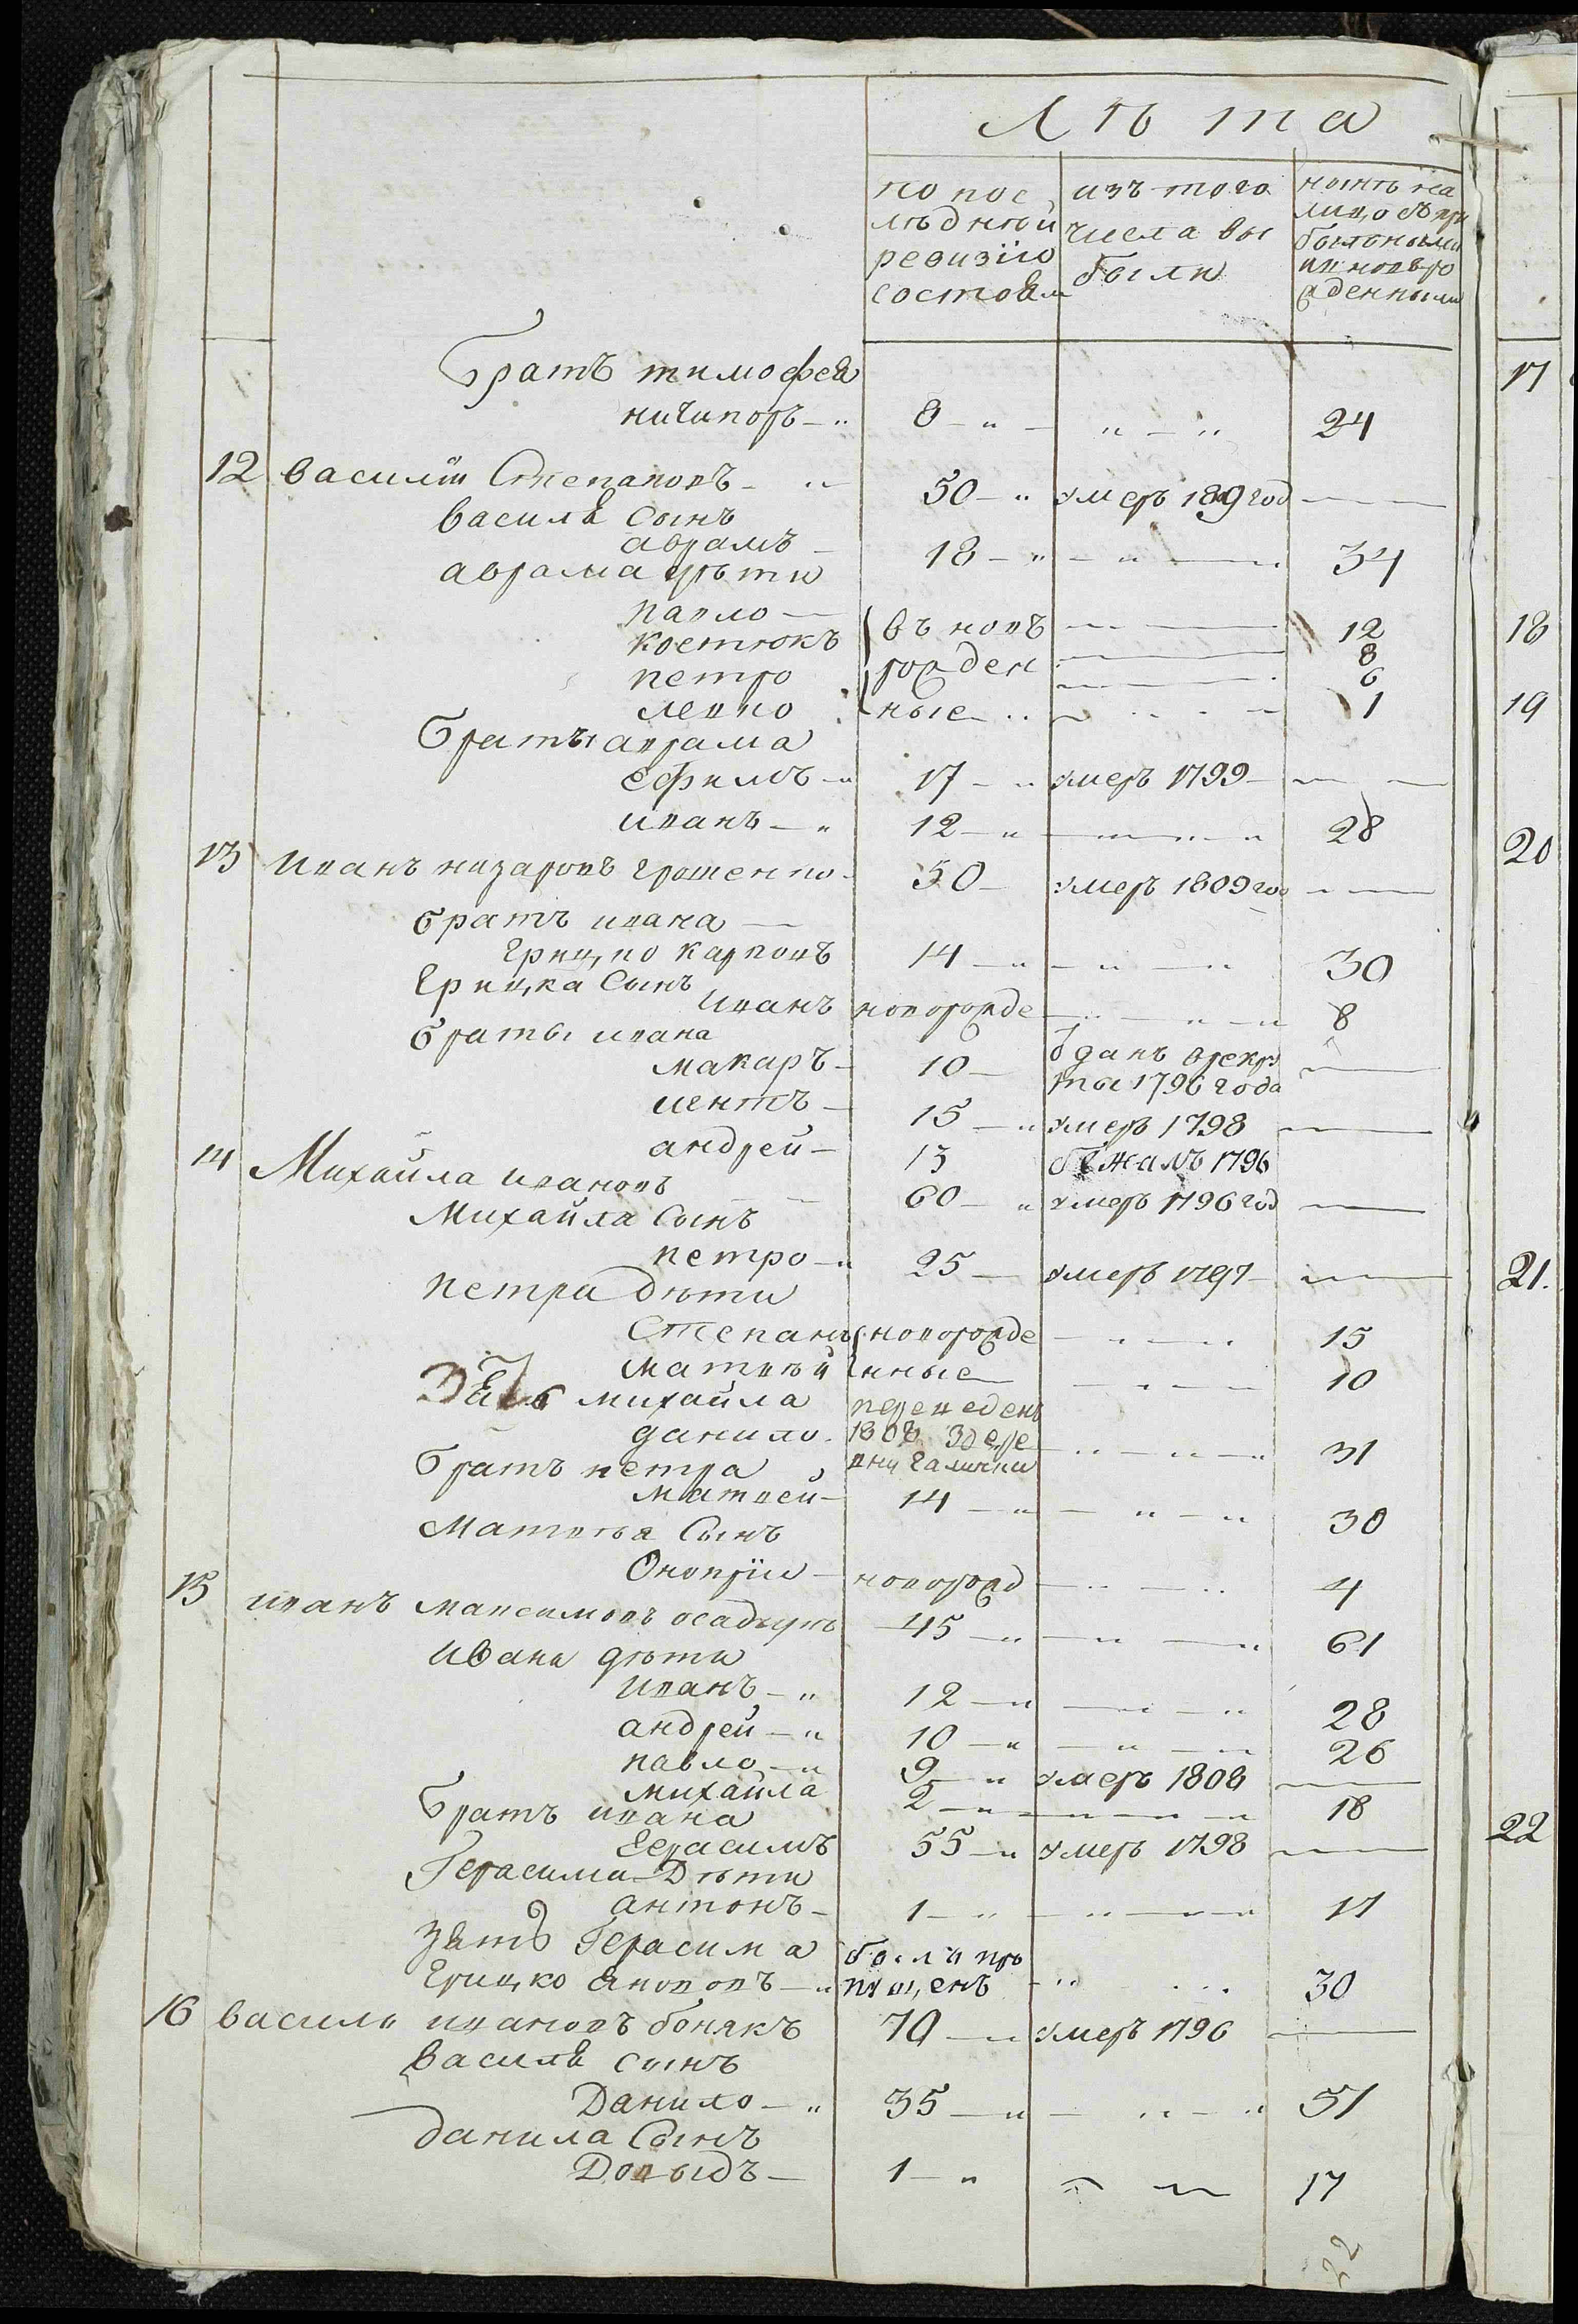 Лѣта
по пос
лѣднѣй
ревизіи
состояли
изъ того
числа вы
были
нынѣ на
лицо съ при
былыми
и новоро
жденными
братъ тимофея
ничипоръ 8 24
12 василій Степановъ 50 умеръ 1809 год
василя Сынъ
аврамъ 18 34
аврама дѣти
павло въ новъ 12
костюкъ 8
петро рожден 6
левко ные 1
браты аврама
ефимъ 17 умеръ 1799
иванъ 12 28
13 Иванъ назаровъ 50 умеръ 1809 год
братъ ивана
грицко карповъ 14 30
Грицка Сынъ
иванъ новорожде 8
браты ивана
макаръ 10 1796 года
15 умеръ 1798
андрей 13 бѣжалъ 1796
14 Михайла ивановъ 60 умеръ 1796 год
Михайла Сынъ
петро 25 умеръ 1797
петра дѣти
Степанъ новорожде 15
матвѣй нные 10
михайла
данило 31
братъ петра
матвей 14 30
Матвѣя Сынъ
Онопрій новорожд 4
15 иванъ максимовъ 45 61
ивана дѣти
иванъ 12 28
андрей 10 26
павло 9 умеръ 1808
михайла 2 18
братъ ивана
Герасимъ 55 умеръ 1798
Герасима Дѣти
антонъ 1 17
зять Герасима былъ про
грицко пущенъ 30
16 василь ивановъ бонякъ 70 умеръ 1796
василя сынъ
Данило 35 51
данила Сынъ
Довыдъ 1 17
22
17
18
19
20
21.
22